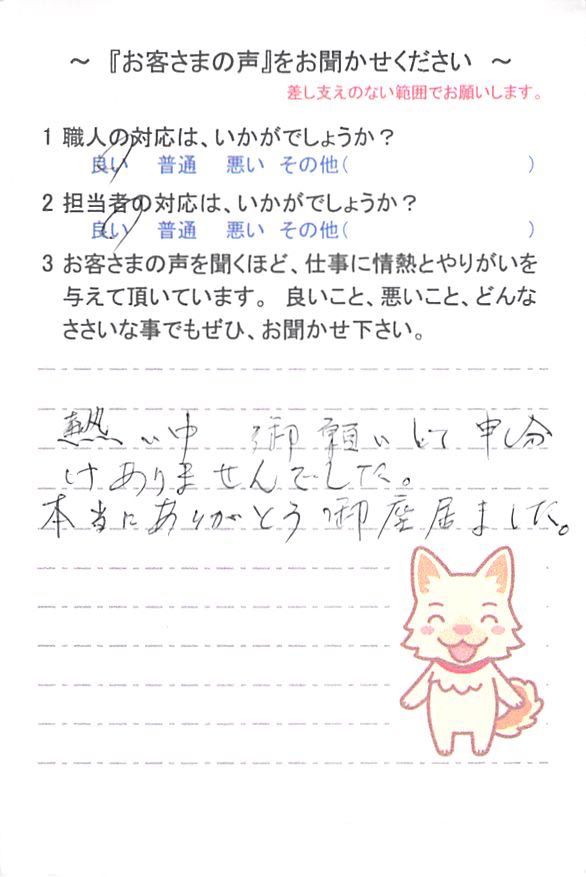 ～ 『お客さまの声』をお聞かせください ～
差し支えのない範囲でお願いします。
1 職人の対応は、いかがでしょうか？
良い 普通 悪い その他( )
2 担当者の対応は、いかがでしょうか？
良い 普通 悪い その他( )
3 お客さまの声を聞くほど、仕事に情熱とやりがいを
与えて頂いています。 良いこと、悪いこと、どんな
ささいな事でもぜひ、お聞かせ下さい。
熱い中 御願いして申し分
けありませんでした。
本当にありがとう御座居ました。